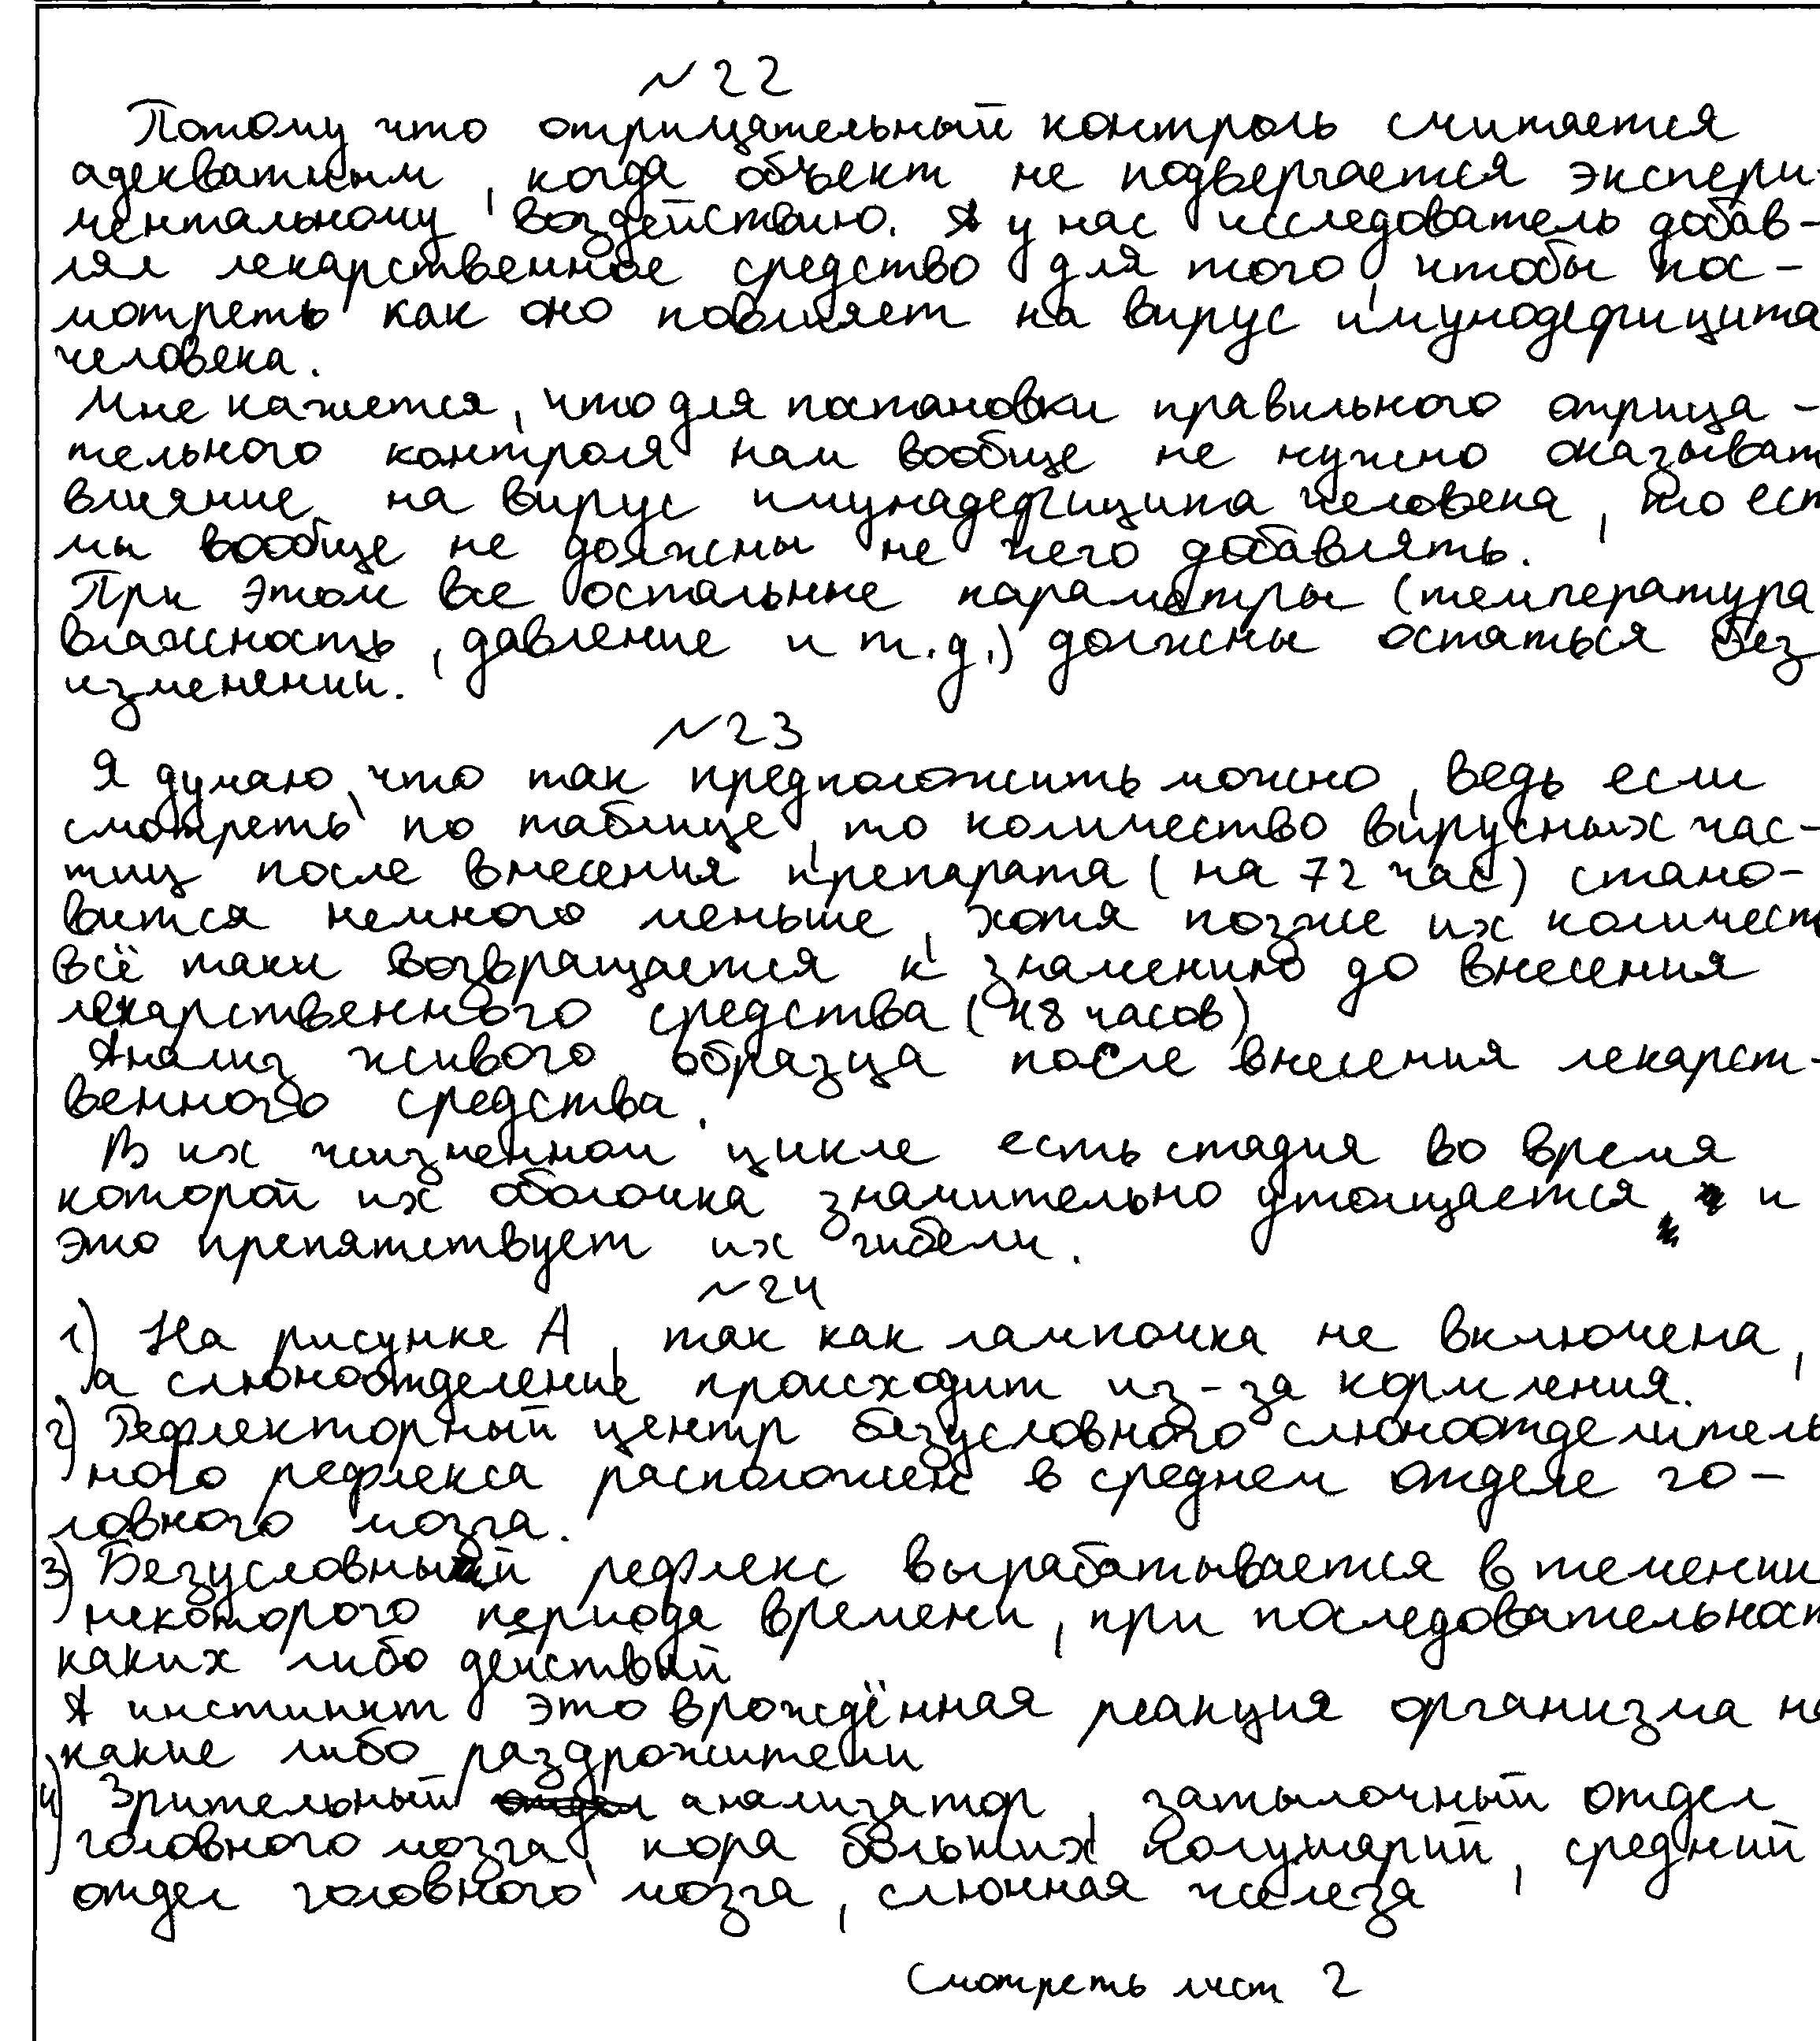 №22
Потому что отрицательный контроль считается
адекватным, когда объект не подвергается экспери-
ментальному воздействию. А у нас исследователь добав-
лял лекарственное средство для того, чтобы пос-
мотреть как оно повлияет на вирус имунодефицита
человека.
Мне кажется, что для постановки правильного отрица-
тельного контроля нам вообще не нужно оказыват
влияние на вирус имунадефицита человека, то ест
мы вообще не должны не чего добавлять.
При этом все остальные параметры (температура
влажность, давление и т.д.) должны остаться без
изменений.
№23
Я думаю, что так предположить можно, ведь если
смотреть по таблице, то количество вирусных час-
тиц после внесения препарата (на 72 час) стано-
вится немного меньше, хотя позже их количест
всё таки возвращается к значению до внесения
лекарственного средства (48 часов)
Анализ живого образца после внесения лекарст-
венного средства.
В их жизненном цикле есть стадия во время
которой их оболочка значительно утолщается, и
это препятствует их гибели.
№24
1) На рисунке А, так как лампочка не включена,
а слюноотделение происходит из-за кормления.
2) Рефлекторный центр безусловного слюноотделитель
ного рефлекса расположен в среднем отделе го-
ловного мозга.
3) Безусловный рефлекс вырабатывается в течении
некоторого периода времени, при последовательност
каких либо действий
А инстинкт это врождённая реакция организма на
какие либо раздрожители
4) Зрительный анализатор, затылочный отдел
головного мозга, кора больших полушарий, средний
отдел головного мозга, слюнная железа
Смотреть лист 2